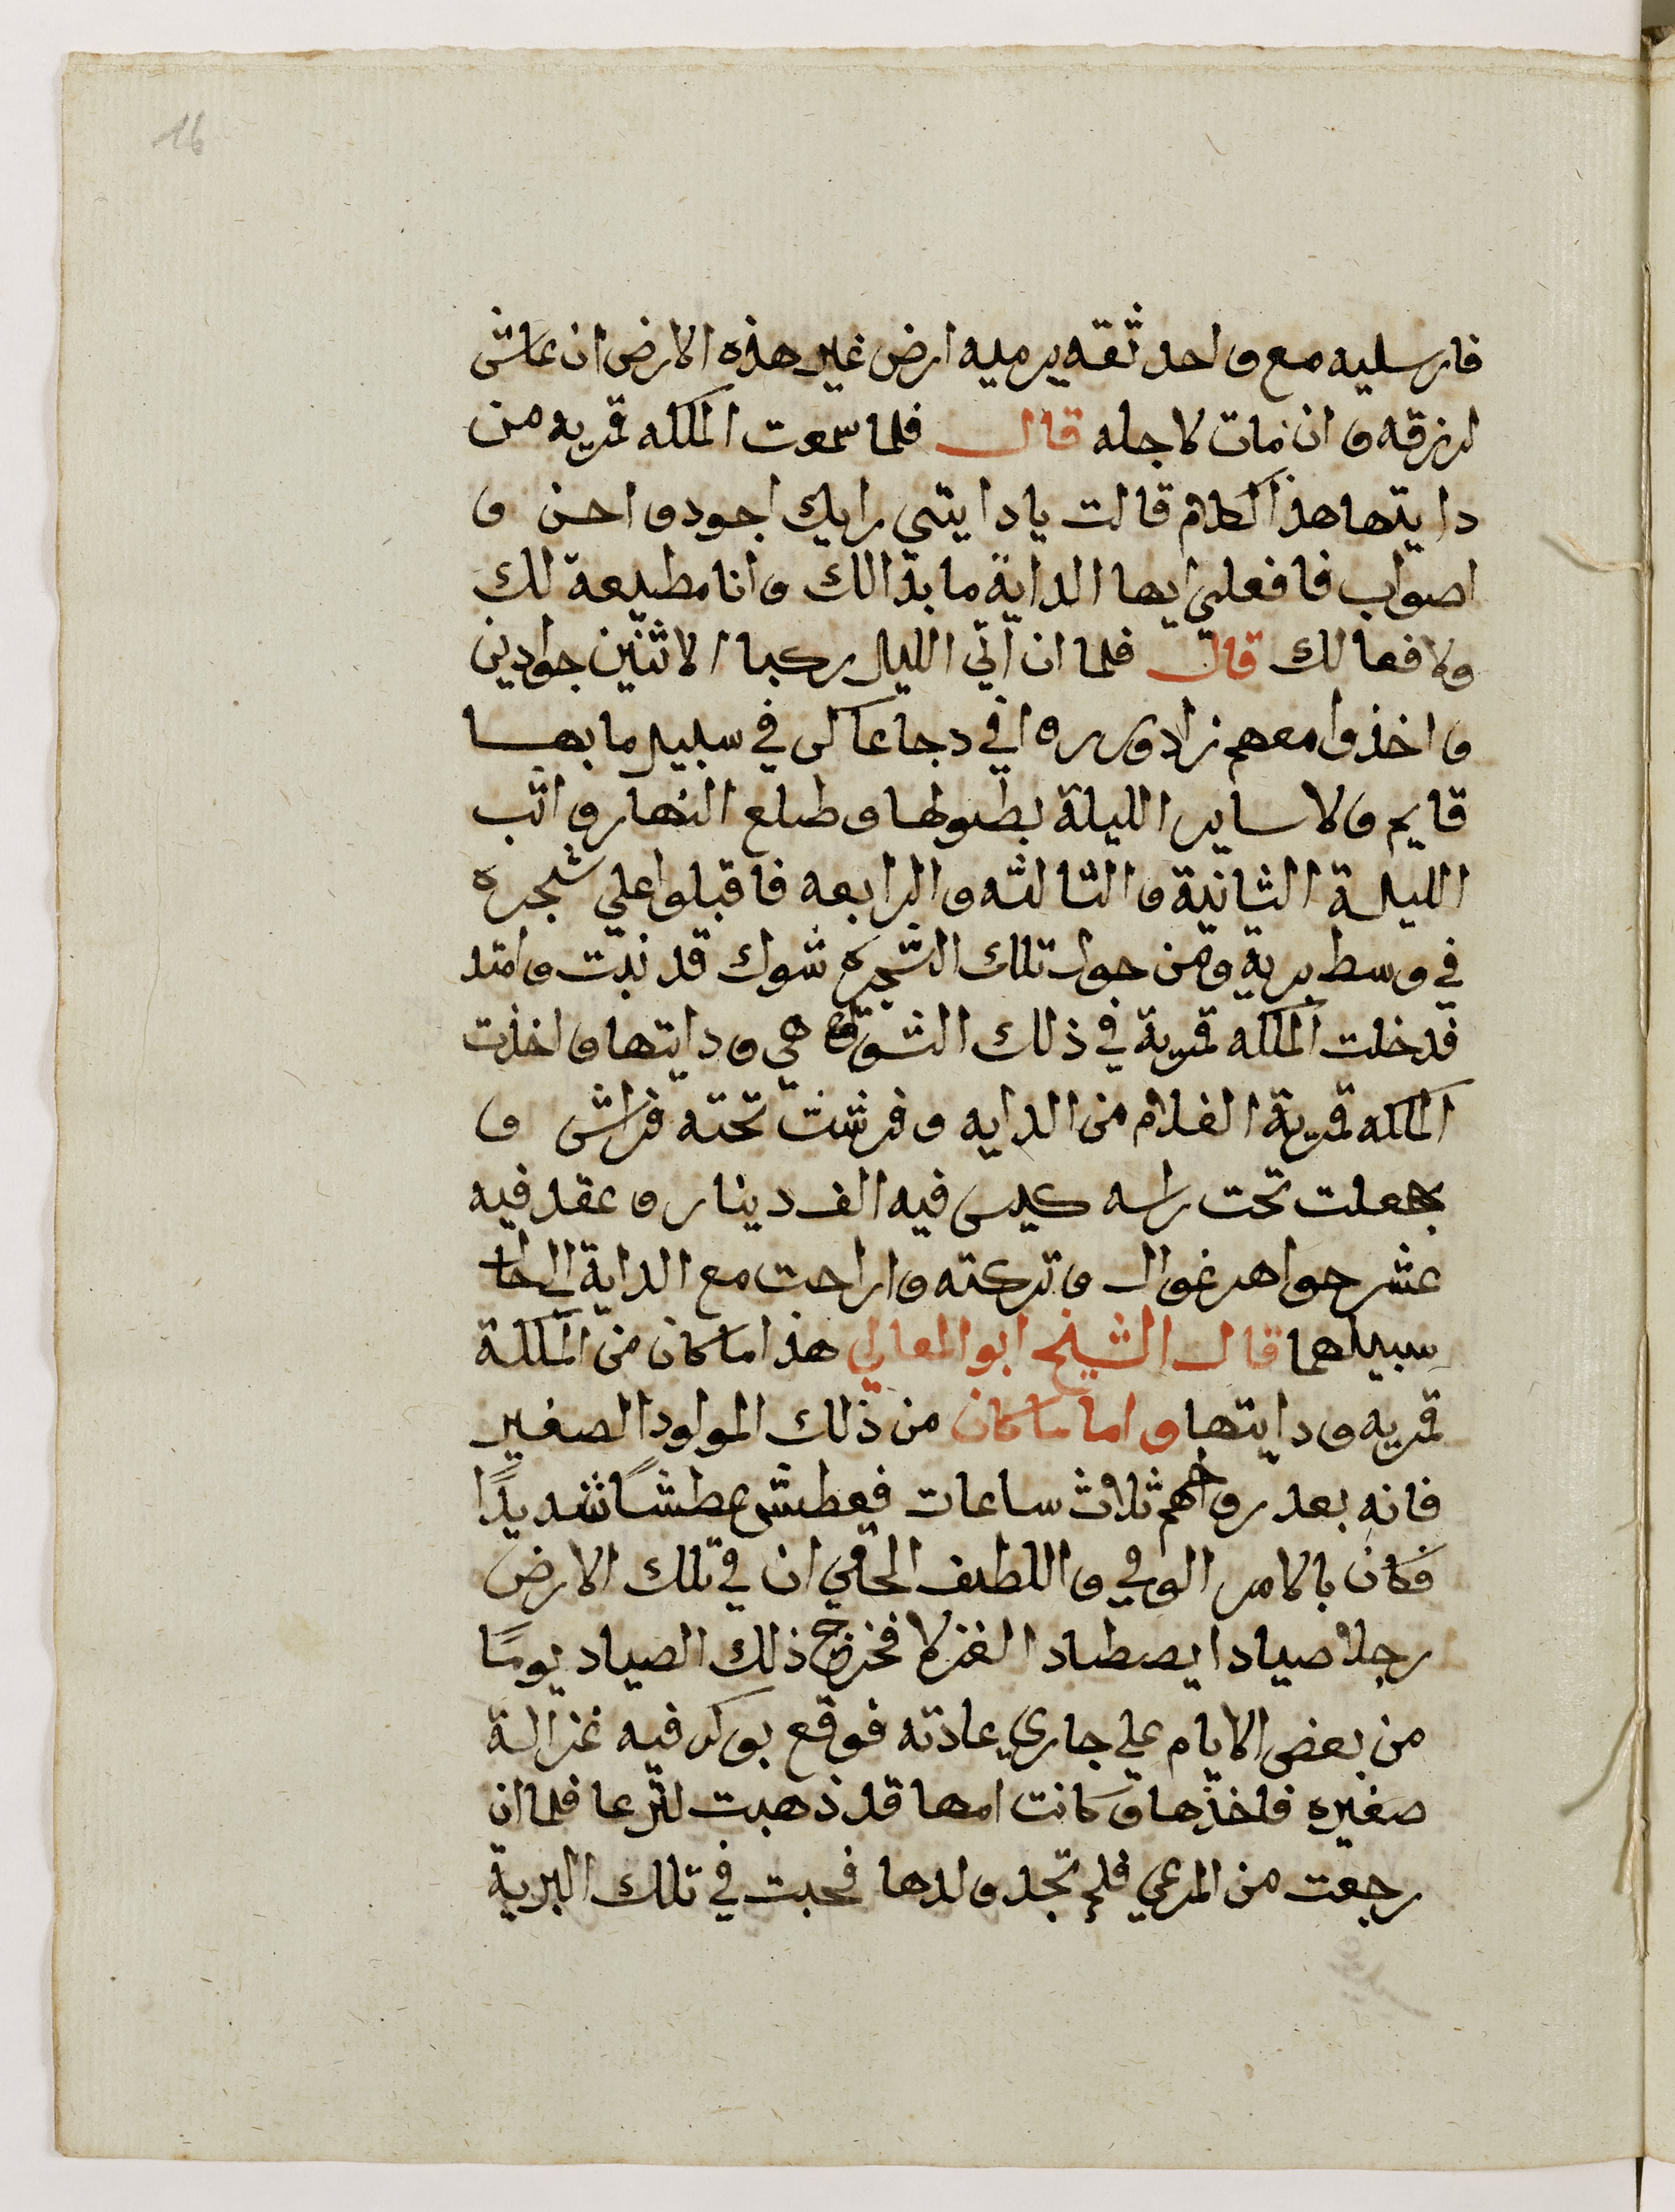 16
فارسليه مع واحد ثقه يرميه ارض غير هذه الارض ان عاش
لرزقه وان مات لاجله قال فلما سمعت الملكه قمريه من
دايتها هذا الكلام قالت يا دايتي رايك اجود واحسن و
اصواب فافعلي ايها الداية ما بدالك وانا مطيعة لك
ولافعالك قال فلما ان اتي الليل ركبا الاثنين جوادين
واخذوا معهم زاد في دجا عاكي في سبيل ما بها
قايم ولا ساير الليلة بطولها وطلع النهار واتب
الليلة الثانية والتالثه والرابعه فاقبلوا علي شجره
في وسط برية ومن حول تلك الشجره شوك قد نبت وامتد
فدخلت الملكه قمرية في ذلك هي ودايتها واخذت
الملكه قمرية الغلام من الدايه وفرشت تحته فراش و
جعلت تحت راسه كيس فيه الف دينار وعقد فيه
عشر جواهر غوال وتركته واراحت مع الداية الي حال
سبيلهما قال الشيخ ابو المعالي هذا ما كان من الملكة
قمريه ودايتها واما ما كان من ذلك المولود الصغير
فانه بعد رواحهم ثلاث ساعات فعطش عطشًا شديدًا
فكان بالامر الوفي واللطف الخفي ان في تلك الارض
رجلا صيادا يصطاد الغزلا فخرج ذلك الصياد يومًا
من بعض الايام علي جاري عادته فوقع بوكر فيه غزالة
صغيره فاخذها وكانت امها قد ذهبت لترعا فلما ان
رجعت من المرعي فلم تجد ولدها فحبت في تلك البرية